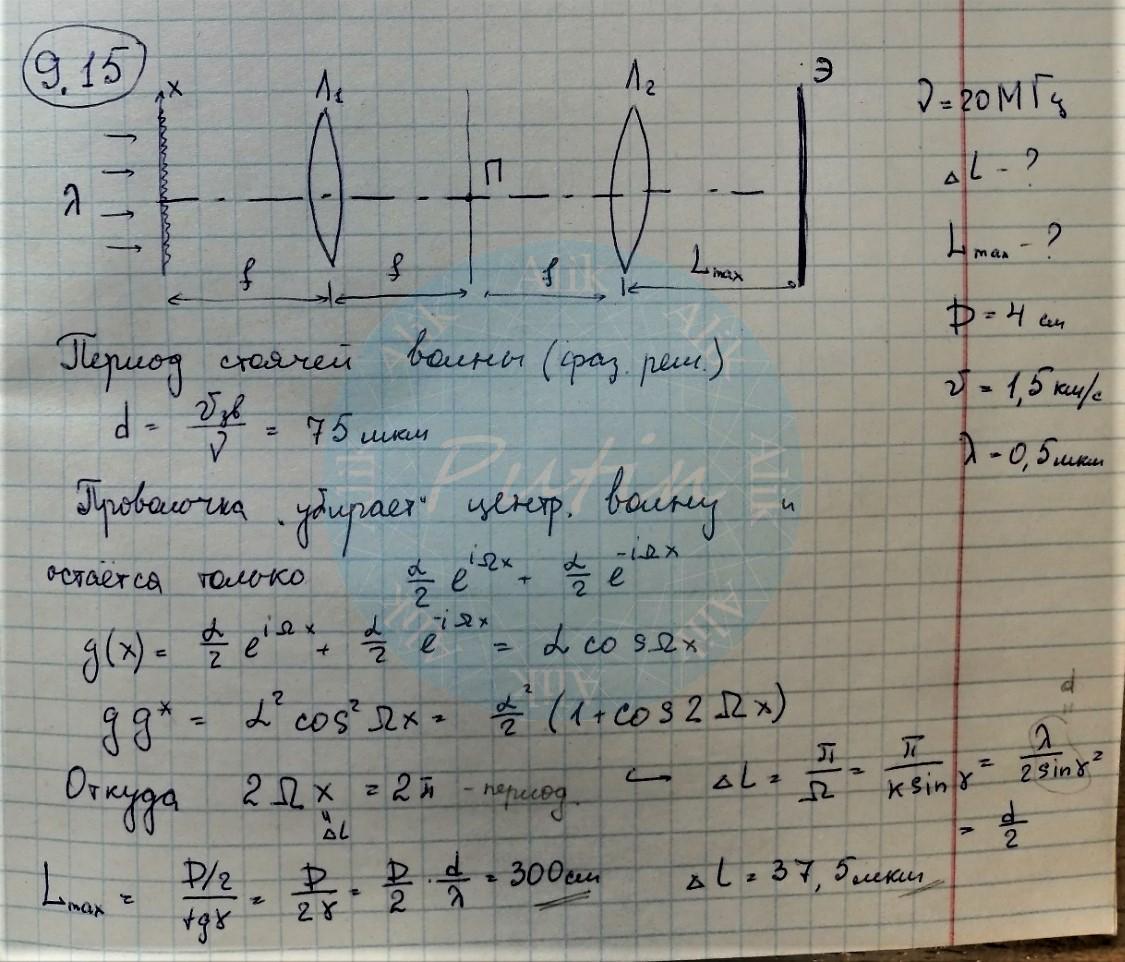 9.15
x Л₁ Л₂ Э
λ П
f f f L_max
ν = 20 МГц
ΔL - ?
L_max - ?
D = 4 см
v = 1,5 км/с
λ = 0,5 мкм
Период стоячей волны (фаз. реш.)
d = v_зв / ν = 75 мкм
Проволочка „убирает“ центр. волну и
остаётся только α/2 e^{iΩx} + α/2 e^{-iΩx}
g(x) = α/2 e^{iΩx} + α/2 e^{-iΩx} = α cos Ωx
g g* = α² cos² Ωx = α²/2 (1 + cos 2Ωx)
Откуда 2Ωx = 2π - период. ↪ ΔL = π/Ω = π/(k sin γ) = λ/(2 sin γ) =
" ΔL = d
= d/2
L_max = (D/2)/(tg γ) = D/(2γ) = D/2 · d/λ = 300 см ΔL = 37,5 мкм
Alik Alik Alik Alik Alik Alik Alik Alik
Putin